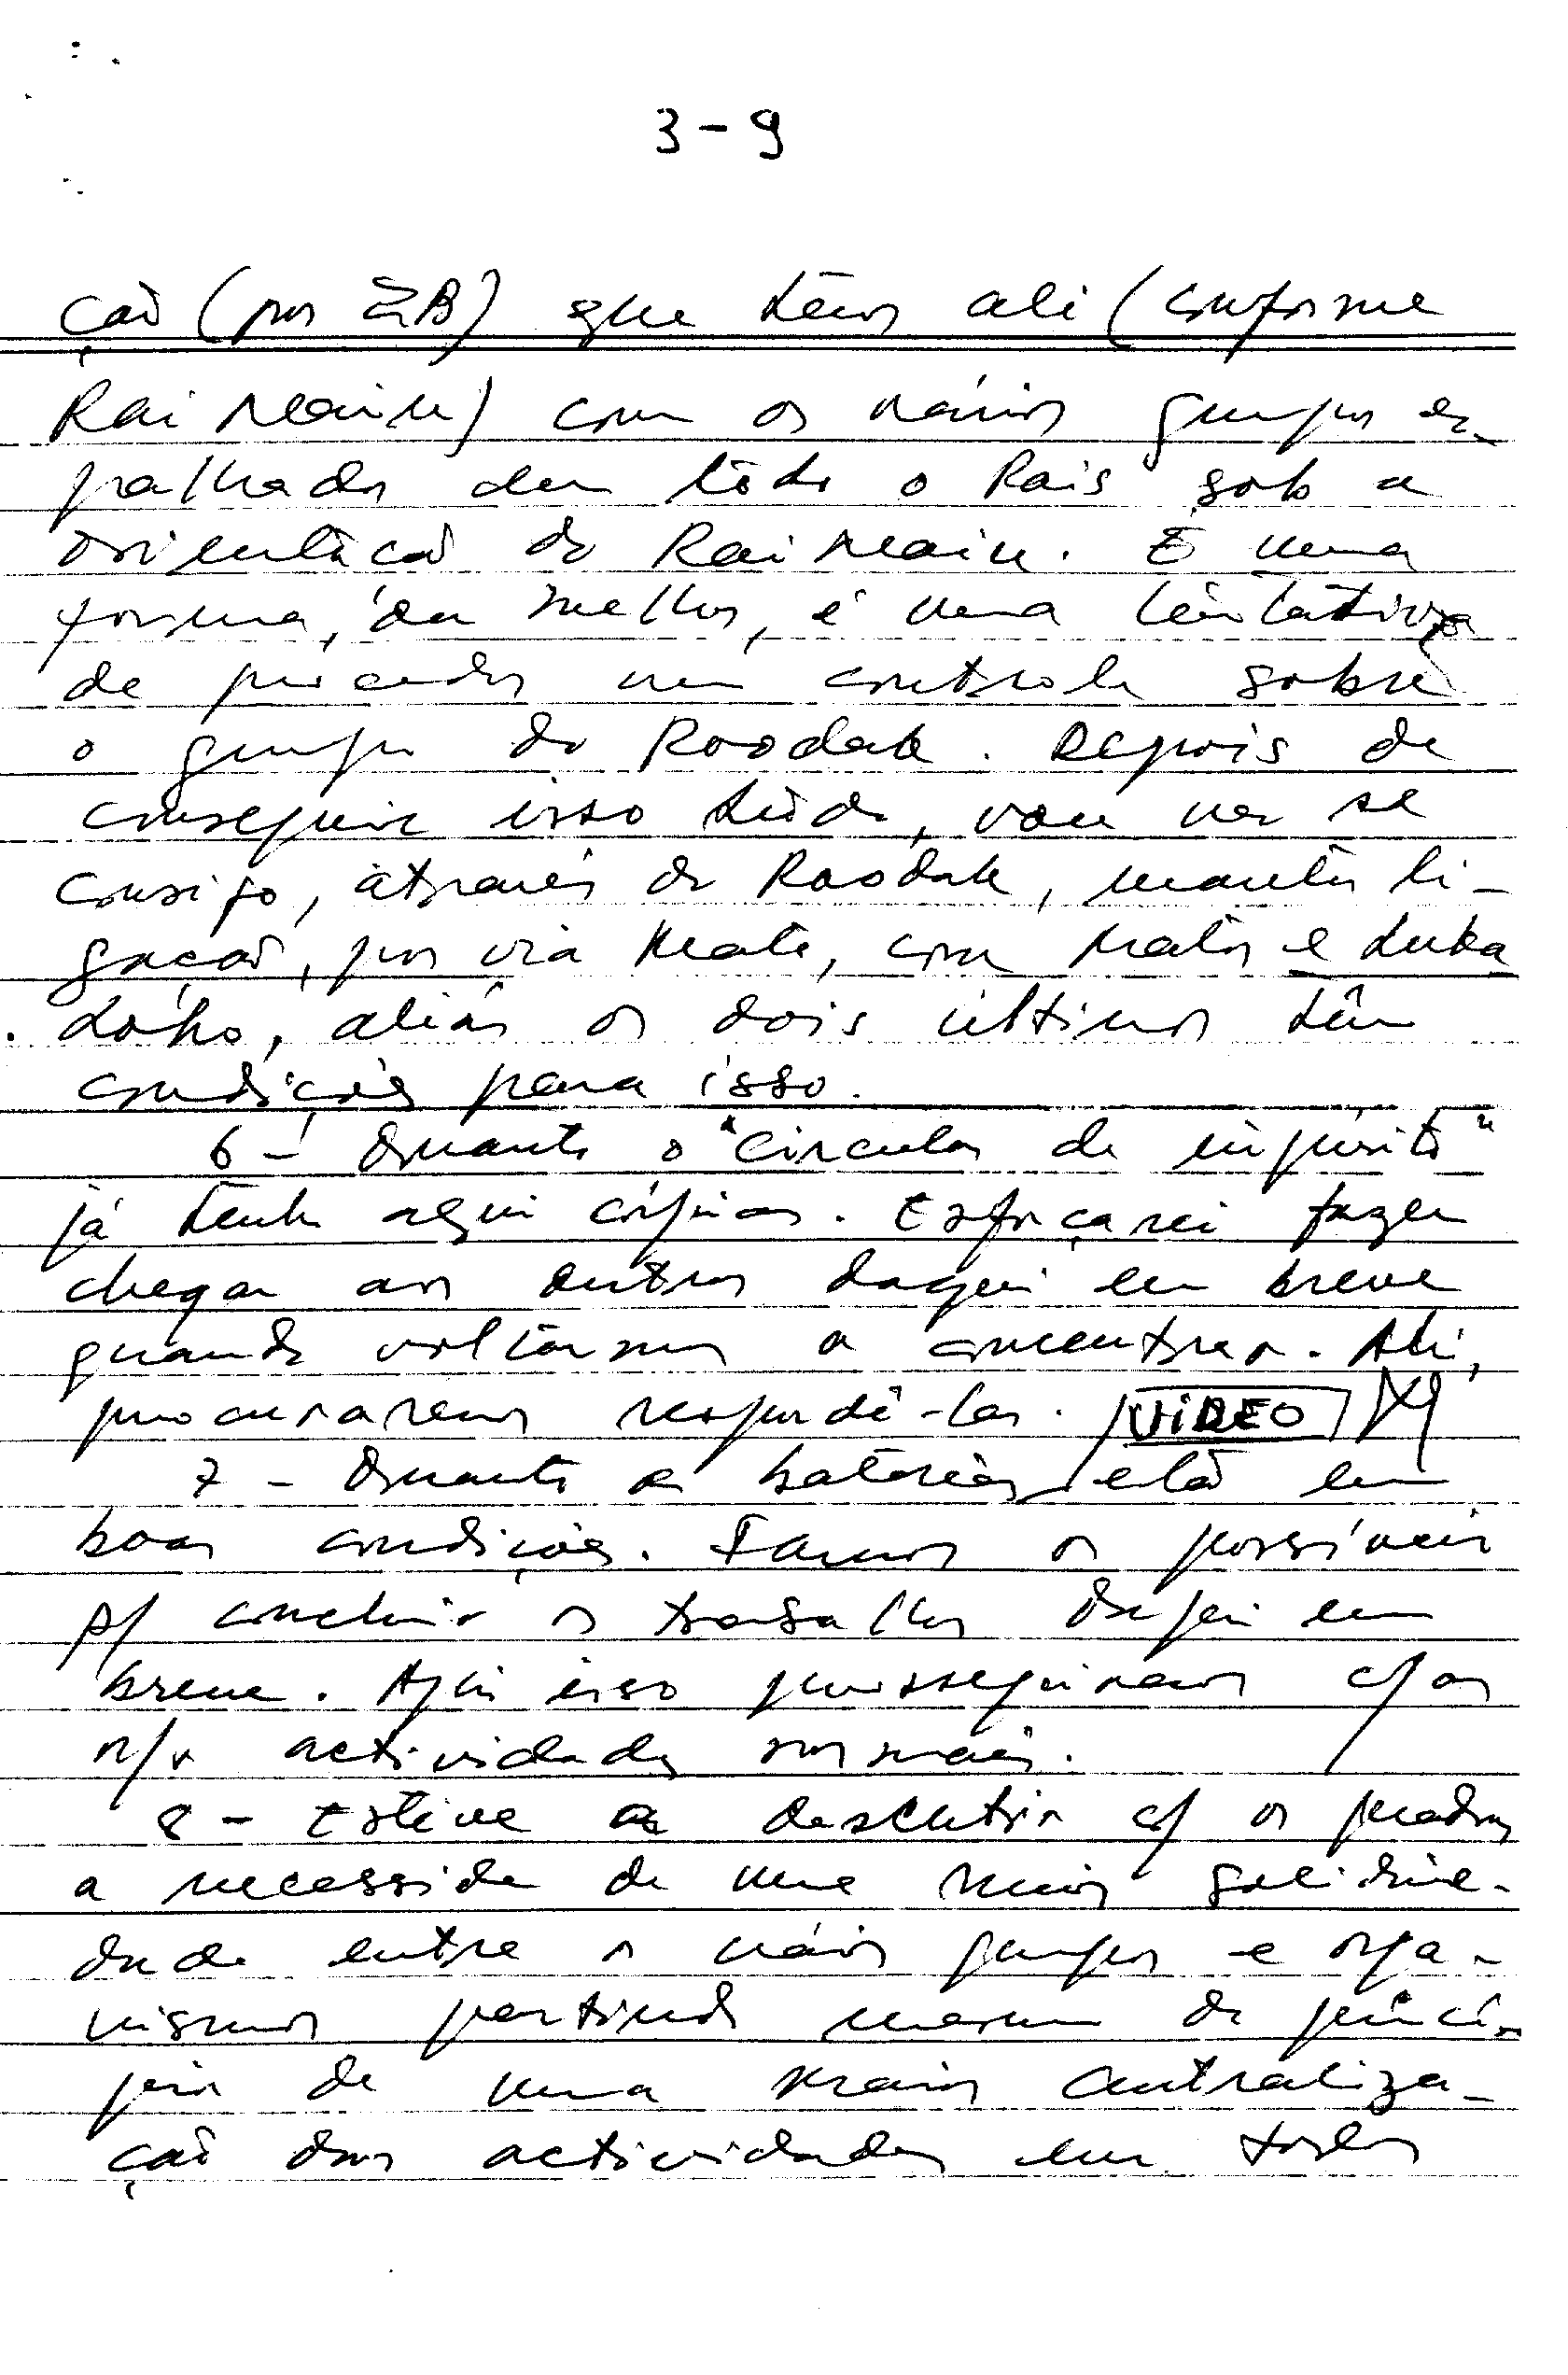 3 - 9
ção (por EB) que temos ali (conforme
Rai Neain) com os vários grupos es-
palhados em todo o Pais sob a
orientação do Rai Neain. É uma
forma, ou melhor, é uma tentativa
de um controle sobre
o grupo do Roodak. Depois de
conseguir isso tudo, vou ver se
consigo, através do Roodak, manter li-
gação, por via Mate, com e
aliás os dois últimos têm
condições para isso.
6 - Quanto o "circular de inquérito"
já tenho aqui cópias. Esforçarei fazer
chegar aos outros daqui em breve
quando voltarmos a concentrar. Ali,
procuraremos respondê-las. VIDEO
7 - Quanto as baterias estão em
boas condições. Faremos os possíveis
p/ concluir os trabalhos daqui em
breve. Após isso prosseguiremos c/ as
n/s actividades normais.
8 - Estive a descutir c/ os quadros
a necesside de uma maior solidarie-
dade entre os vários grupos e orga-
nismos partindo mesmo do princí-
pio de uma maior centraliza-
ção das actividades em todos